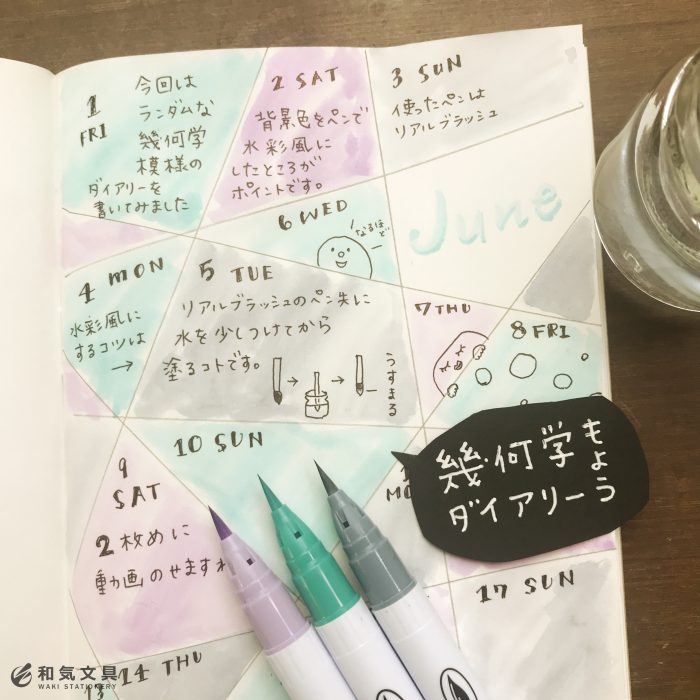 1
FRI
今回は
ランダムな
幾何学
模様の
ダイアリーを
書いてみました
2 SAT
背景色をペンで
水彩風に
したところが
ポイントです。
3 SUN
使ったペンは
リアルブラッシュ
June
4 MON
水彩風に
するコツは
→
5 TUE
リアルブラッシュのペン先に
水を少しつけてから
塗るコトです。
→ →
うすまる
6 WED
なるほど
7 THU
8 FRI
9
SAT
2枚めに
動画のせますね
10 SUN
MO
幾何学もよう
ダイアリー
13
14 THU
17 SUN
和気文具
WAKI STATIONERY